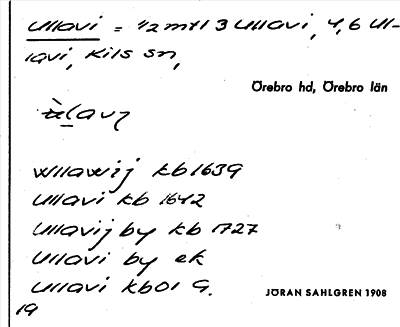 Ullavi = 1/2 mtl 3 Ullavi, 4,6 Ul-
lavi, Kils sn,
Örebro hd, Örebro län
wllawij kb 1639
Ullavi kb 1642
Ullavij by kb 1727
Ullavi by ek
Ullavi kb01 G.
JÖRAN SAHLGREN 1908
19